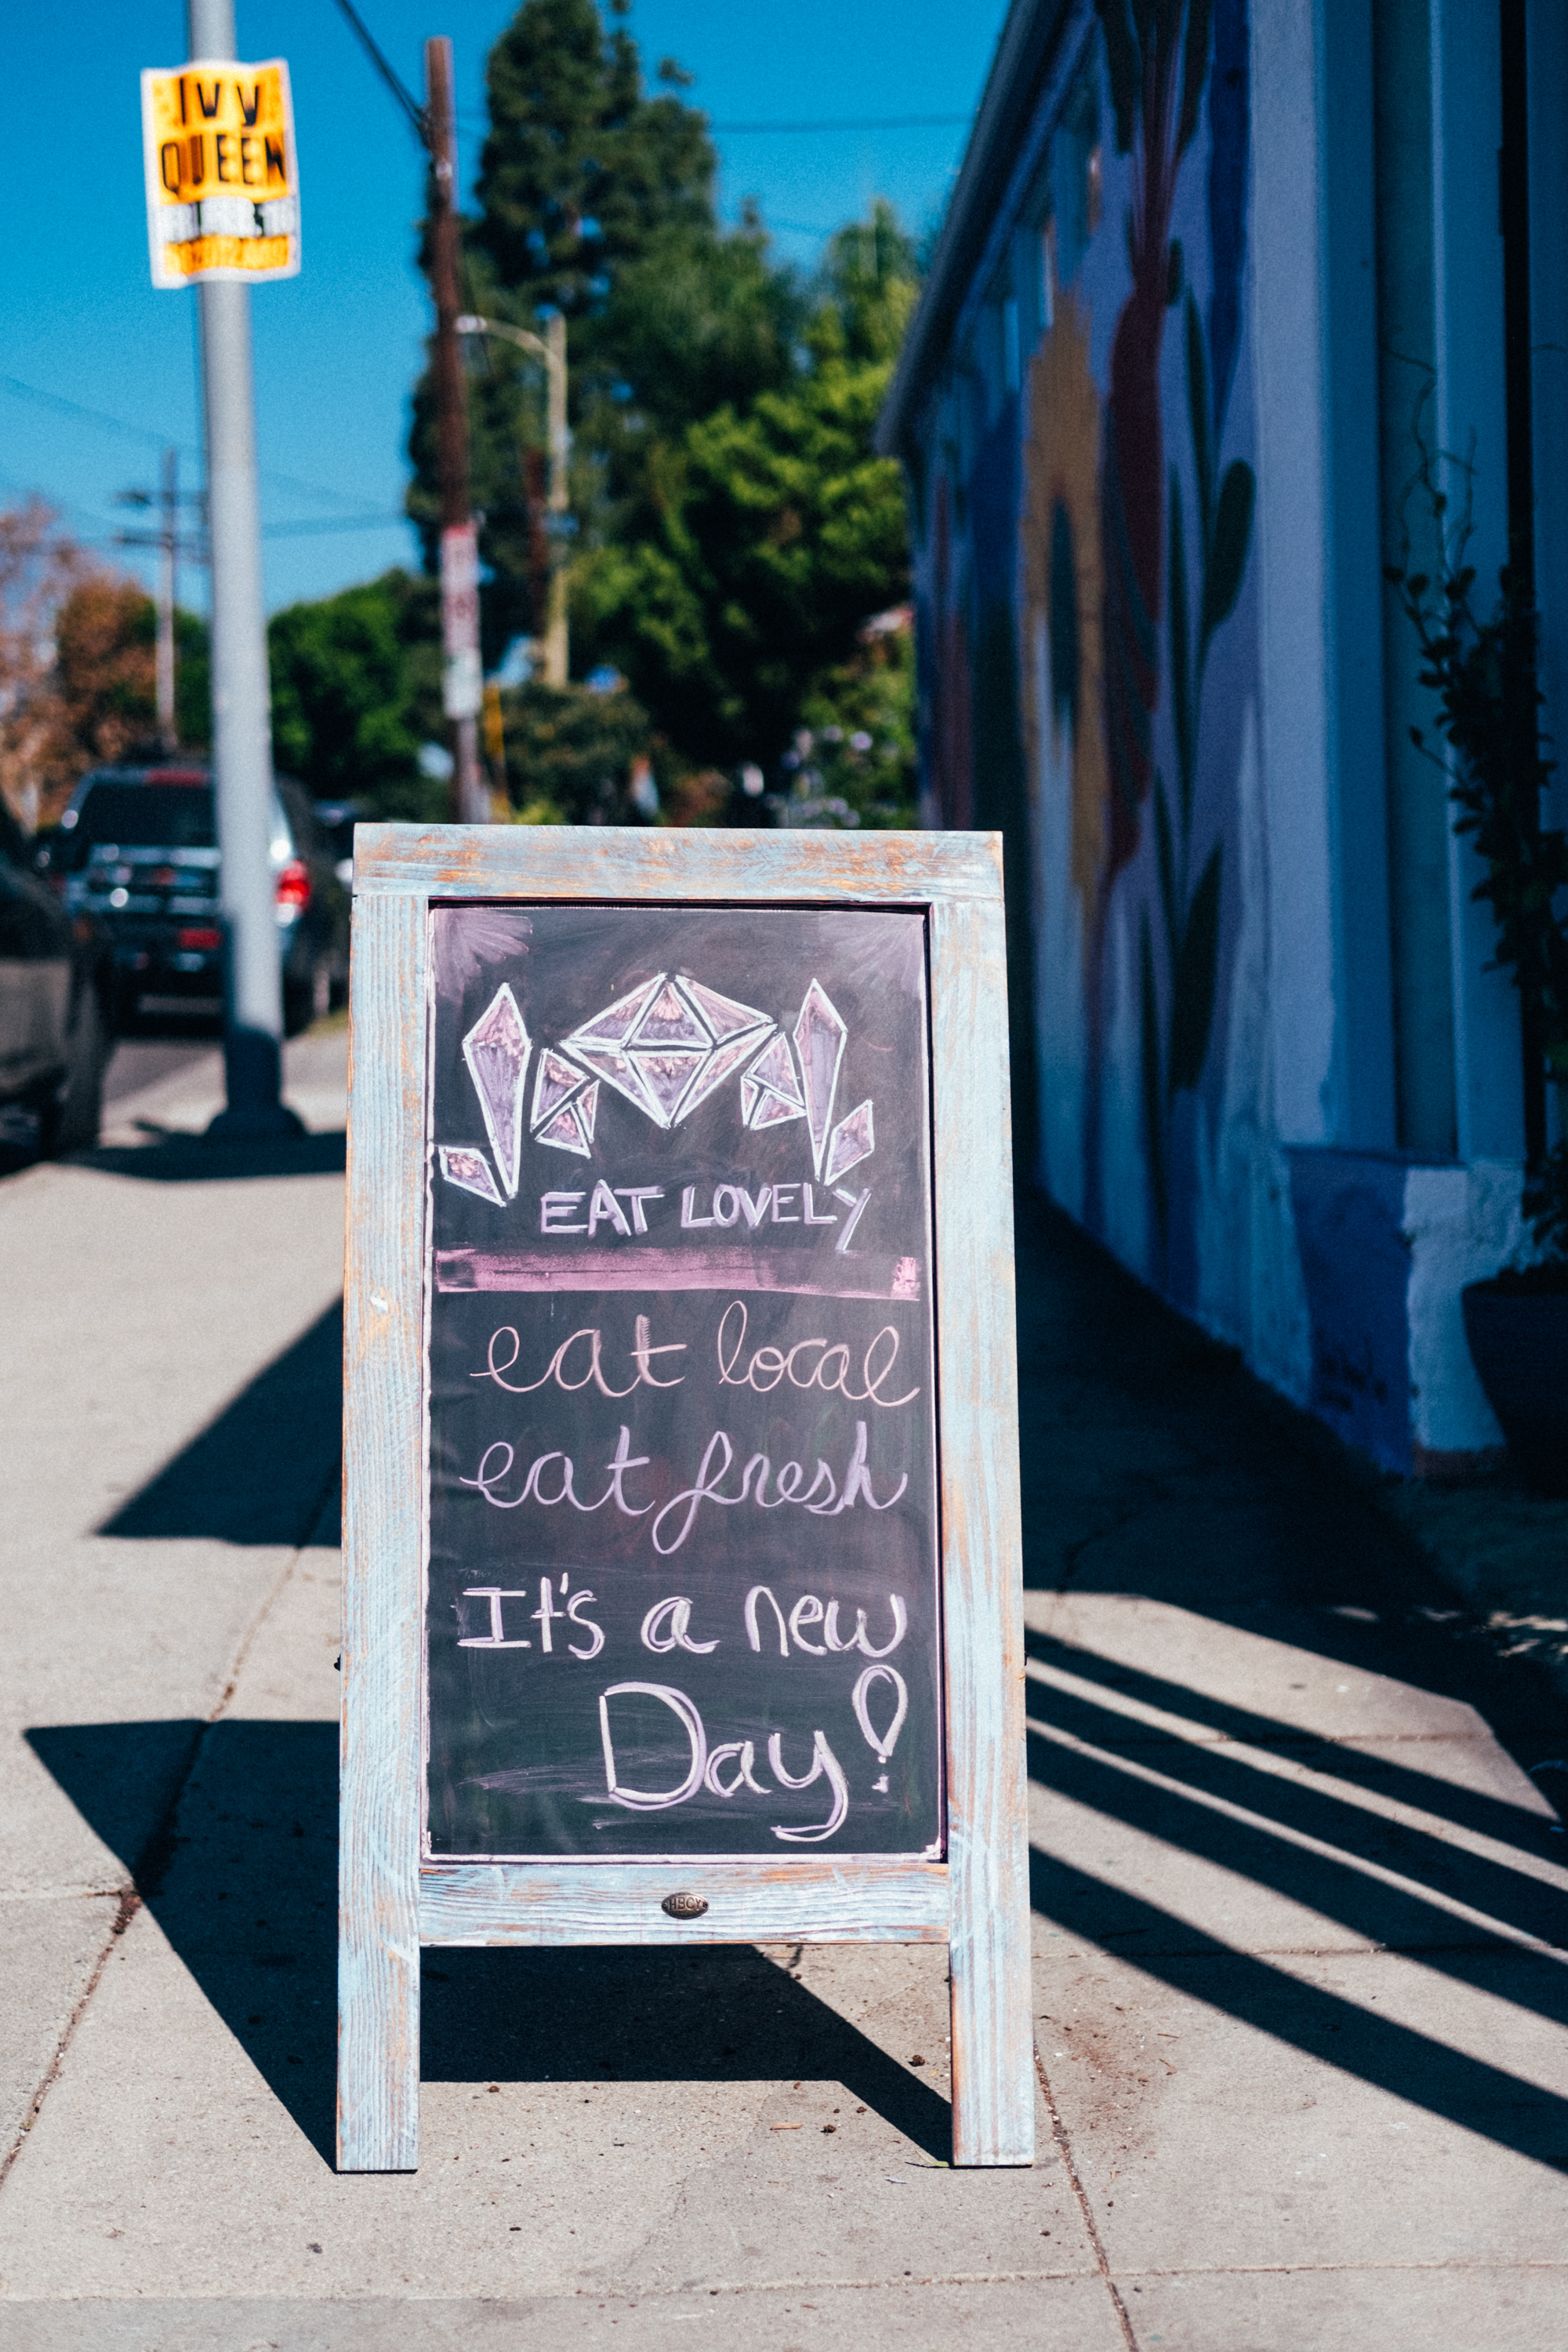 IVY
QUEEN
EAT LOVELY
eat local
eat fresh
It's a new
Day!
HBCY